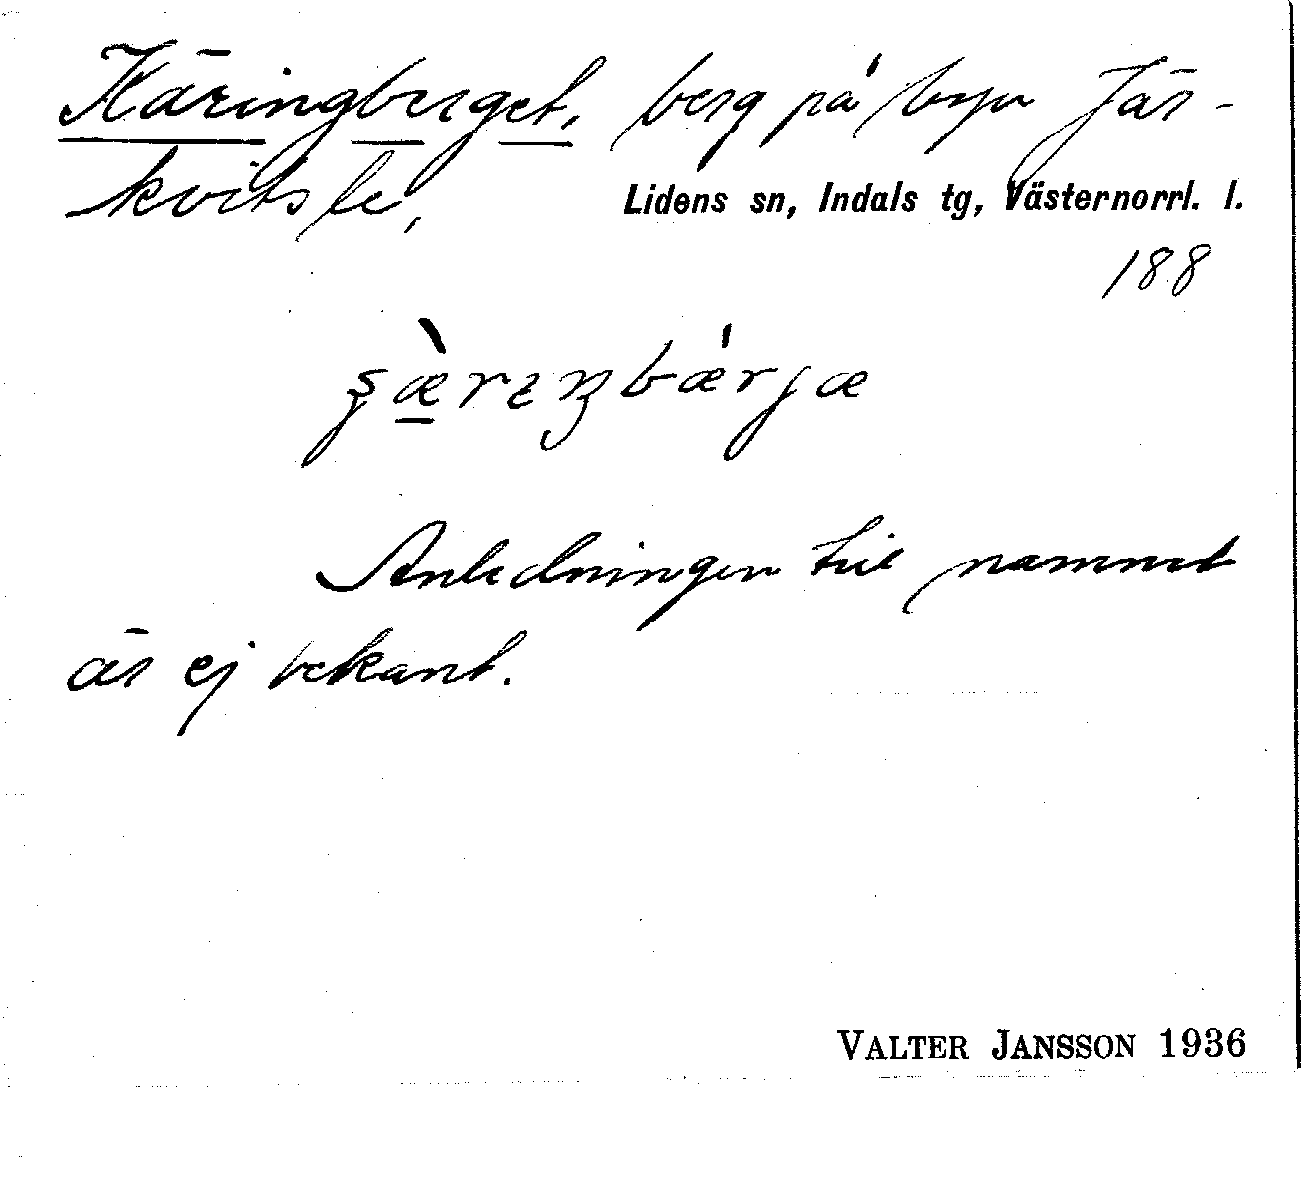 Käringberget, berg på byn Jär-
kvitsle,
Lidens sn, Indals tg, Västernorrl. l.
188
Anledningen till namnet
är ej bekant.
VALTER JANSSON 1936